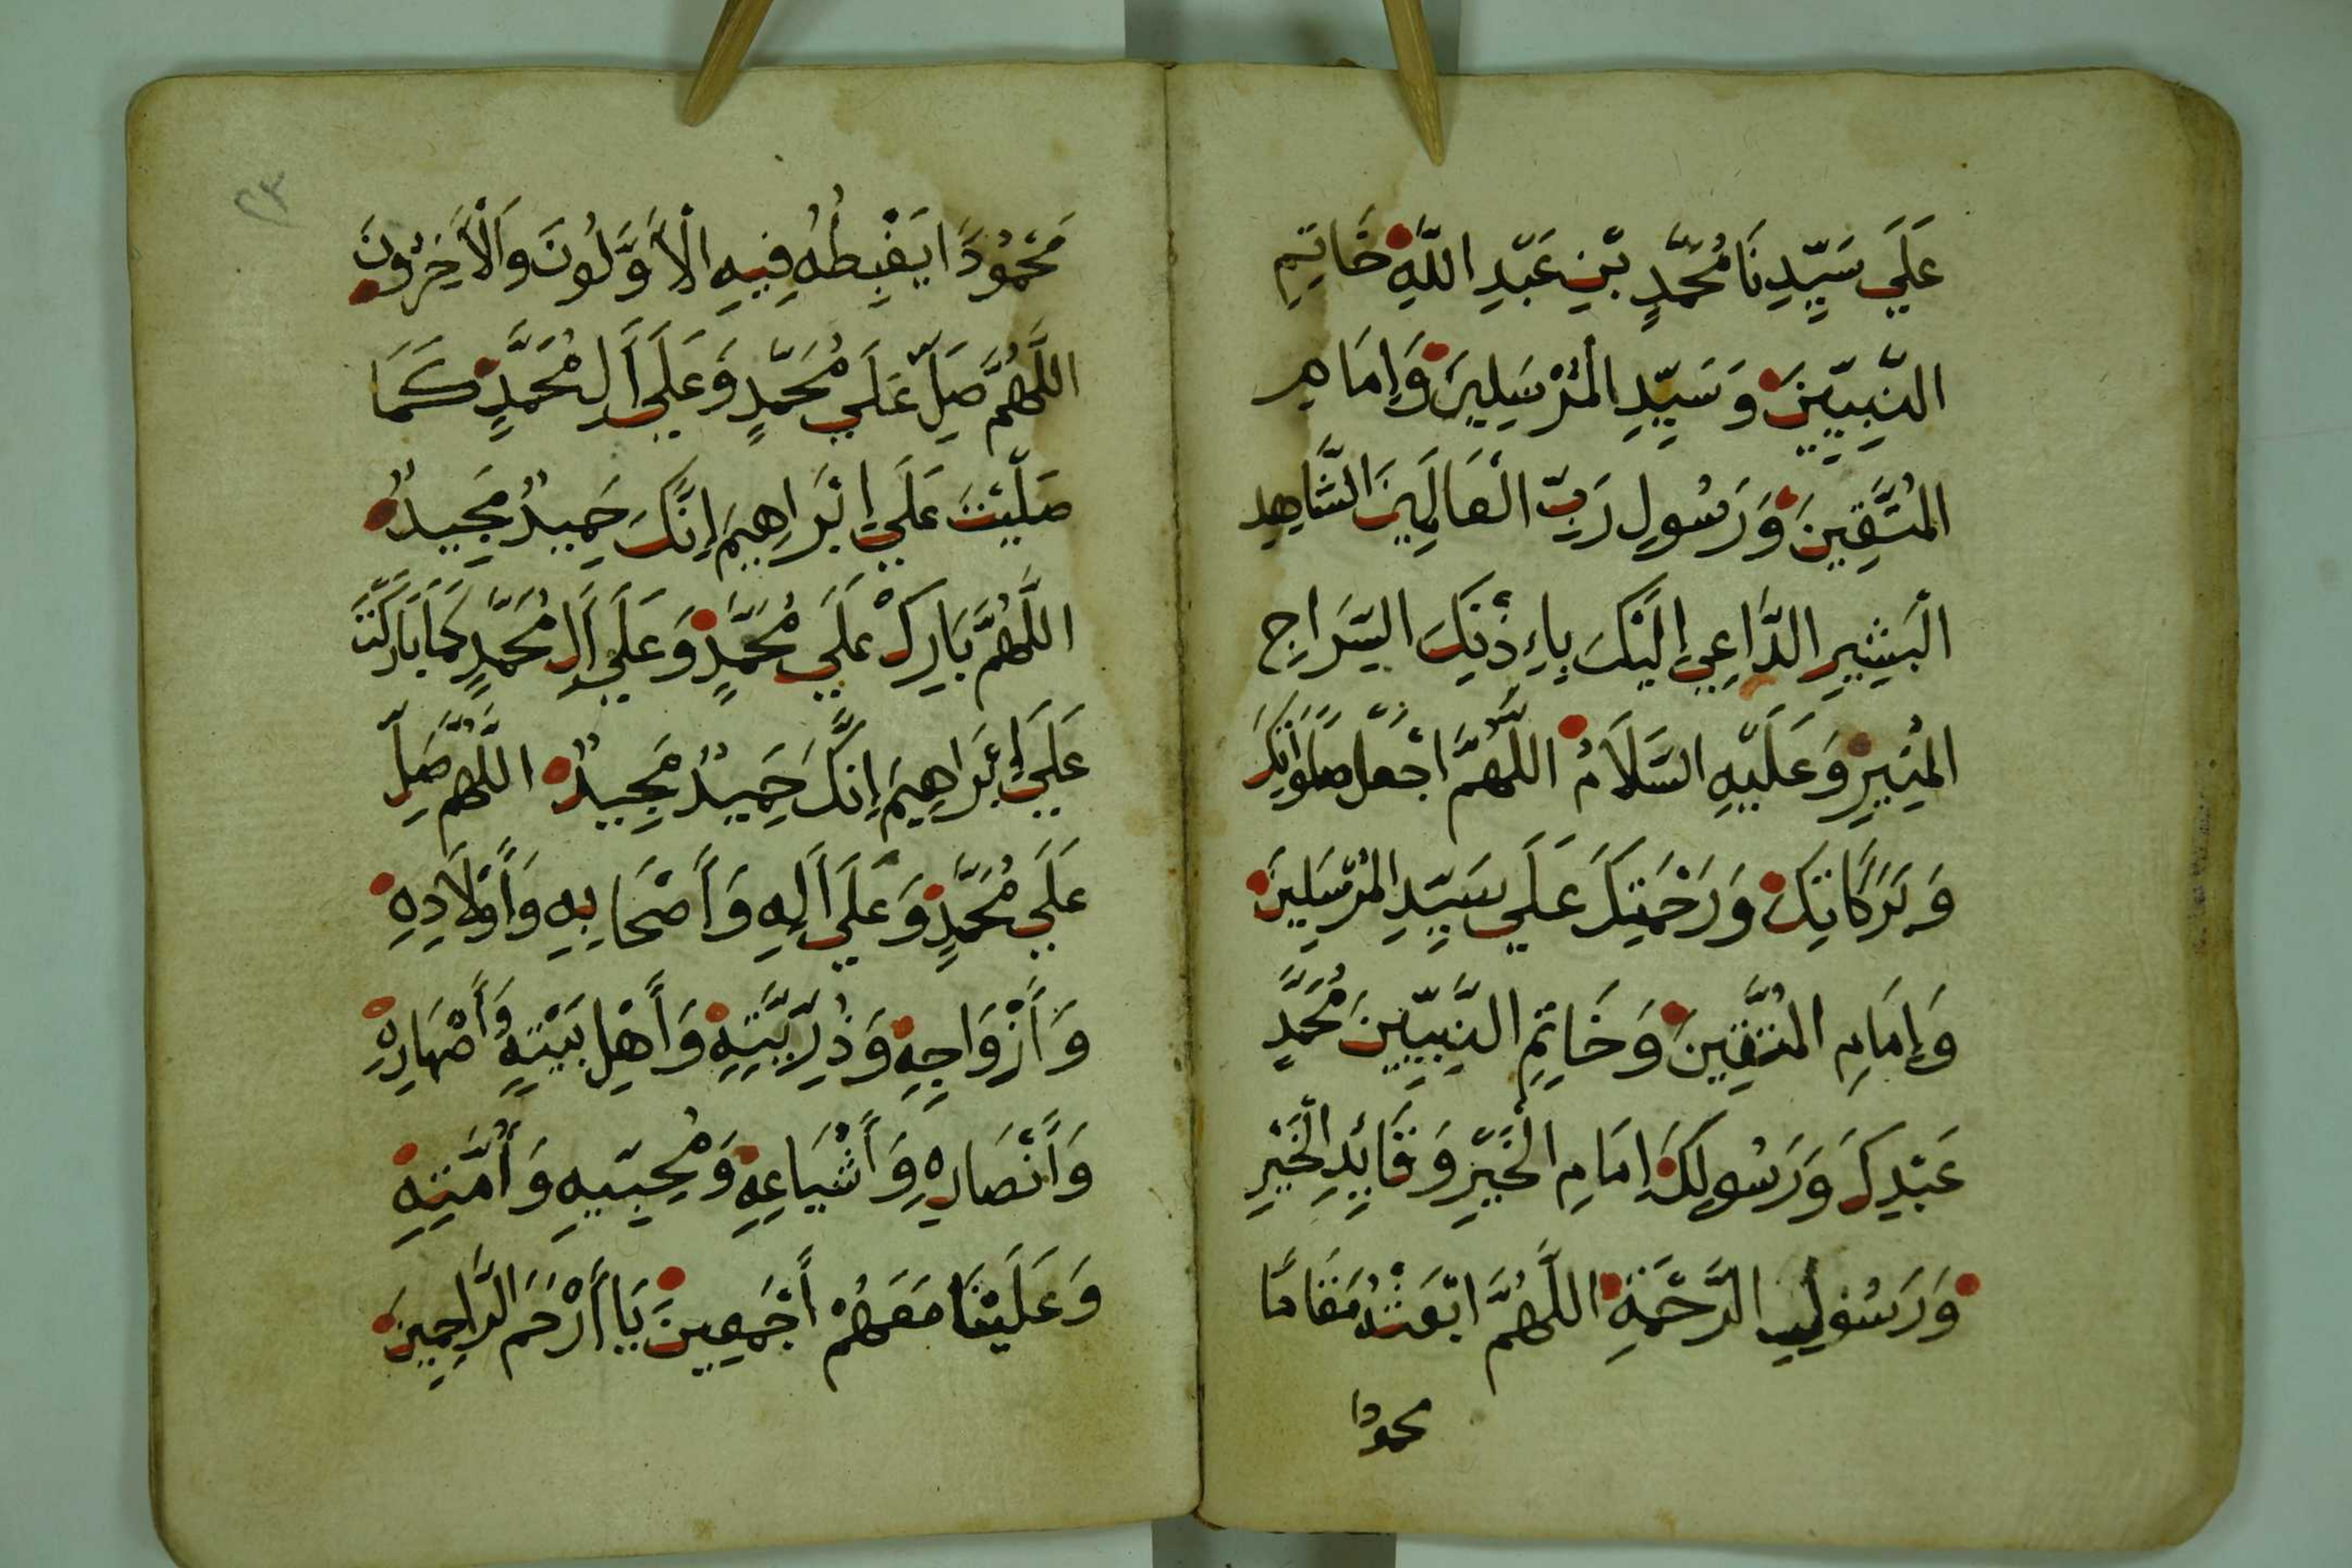 عَلَي سَيِّدِنَا مُحَمَّدٍ بْنِ عَبْدِ اللَّهِ خَاتِمِ
النَّبِيِّينَ وَسَيِّدِ الْمُرْسَلِينَ وَإِمَامِ
الْمُتَّقِينَ وَرَسُولِ رَبِّ الْعَالَمِينَ الشَّاهِدِ
الْبَشِيرِ الدَّاعِي إِلَيْكَ بِإِذْنِكَ السِّرَاجِ
الْمُنِيرِ وَعَلَيْهِ السَّلَامُ اللَّهُمَّ اجْعَلْ صَلَوَاتِكَ
وَبَرَكَاتِكَ وَرَحْمَتِكَ عَلَي سَيِّدِ الْمُرْسَلِينَ
وَإِمَامِ الْمُتَّقِينَ وَخَاتِمِ النَّبِيِّينَ مُحَمَّدٍ
عَبْدِكَ وَرَسُولِكَ إِمَامِ الْخَيْرِ وَقَائِدِ الْخَيْرِ
وَرَسُولِ الرَّحْمَةِ اللَّهُمَّ ابْعَثْهُ مَقَامًا
محمودا
٢٣
مَحْمُودًا يَغْبِطُهُ فِيهِ الْأَوَّلُونَ وَالْأَخِرُونَ
اللَّهُمَّ صَلِّ عَلَي مُحَمَّدٍ وَعَلَي أَلِ مُحَمَّدٍ كَمَا
صَلَّيْتَ عَلَي إِبْرَاهِيمَ إِنَّكَ حَمِيدٌ مَجِيدٌ
اللَّهُمَّ بَارِكْ عَلَي مُحَمَّدٍ وَعَلَي أَلِ مُحَمَّدٍ كَمَا بَارَكْتَ
عَلَي إِبْرَاهِيمَ إِنَّكَ حَمِيدٌ مَجِيدٌ اللَّهُمَّ صَلِّ
عَلَي مُحَمَّدٍ وَعَلَي أَلِهِ وَأَصْحَابِهِ وَأَوْلَادِهِ
وَأَزْوَاجِهِ وَذُرِّيَّتِهِ وَأَهْلِ بَيْتِهِ وَأَصْهَارِهِ
وَأَنْصَارِهِ وَأَشْيَاعِهِ وَمُحِبِّيهِ وَأُمَّتِهِ
وَعَلَيْنَا مَعَهُمْ أَجْمَعِينَ يَا أَرْحَمَ الرَّاحِمِينَ